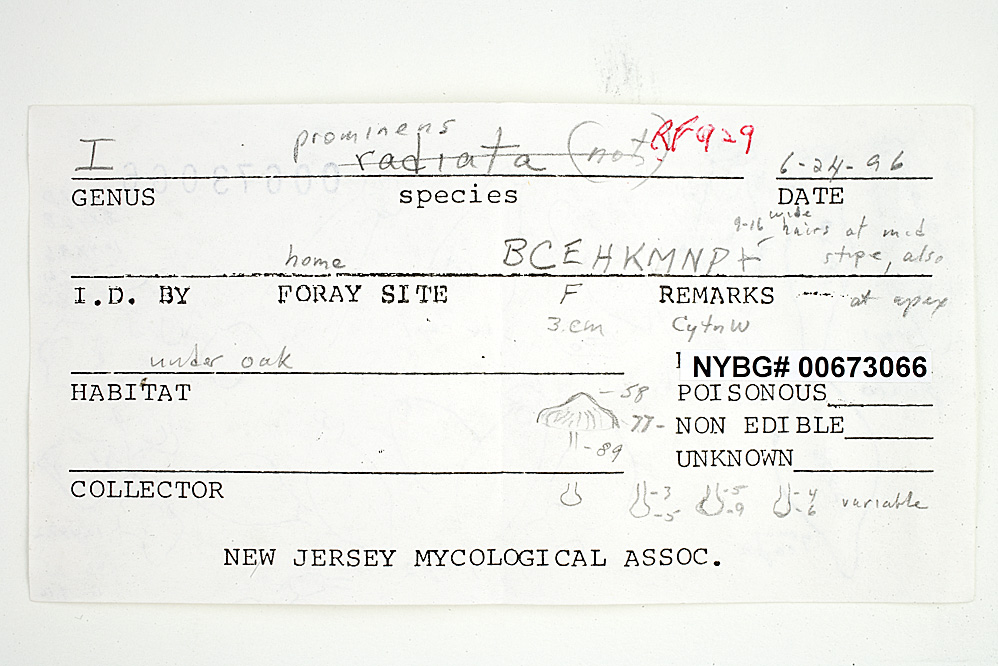 prominens
I radiata (not) RF929 6-24-96
GENUS species DATE
9-16 wide hairs at mid
home BCEHKMNP+ stipe, also
I.D. BY FORAY SITE F REMARKS at apex
3 cm CytnW
under oak NYBG# 00673066
HABITAT POISONOUS
-58
77- NON EDIBLE
-89
UNKNOWN
COLLECTOR
-3 -5 -5 -9 -4 -6 variable
NEW JERSEY MYCOLOGICAL ASSOC.